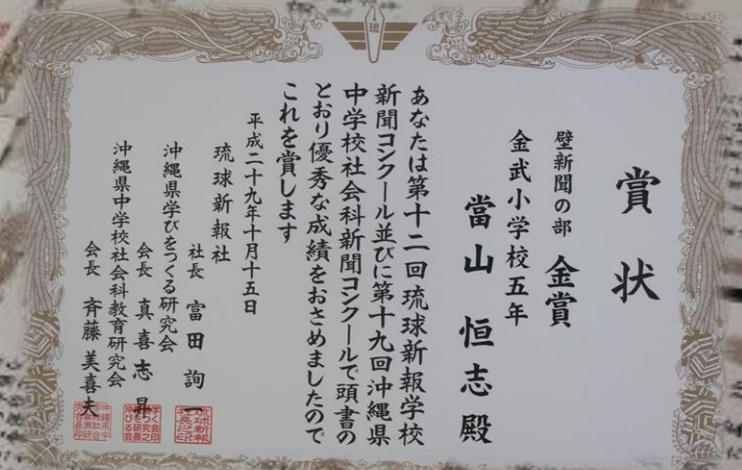 賞状
壁新聞の部 金賞
金武小学校五年
當山 恒志 殿
あなたは第十二回琉球新報学校
新聞コンクール並びに第十九回沖縄県
中学校社会科新聞コンクールで頭書の
とおり優秀な成績をおさめましたので
これを賞します
平成二十九年十月十五日
琉球新報社
社長 富田 詢一
沖縄県学びをつくる研究会
会長 真喜志 昇
沖縄県中学校社会科教育研究会
会長 斉藤 美喜夫
琉